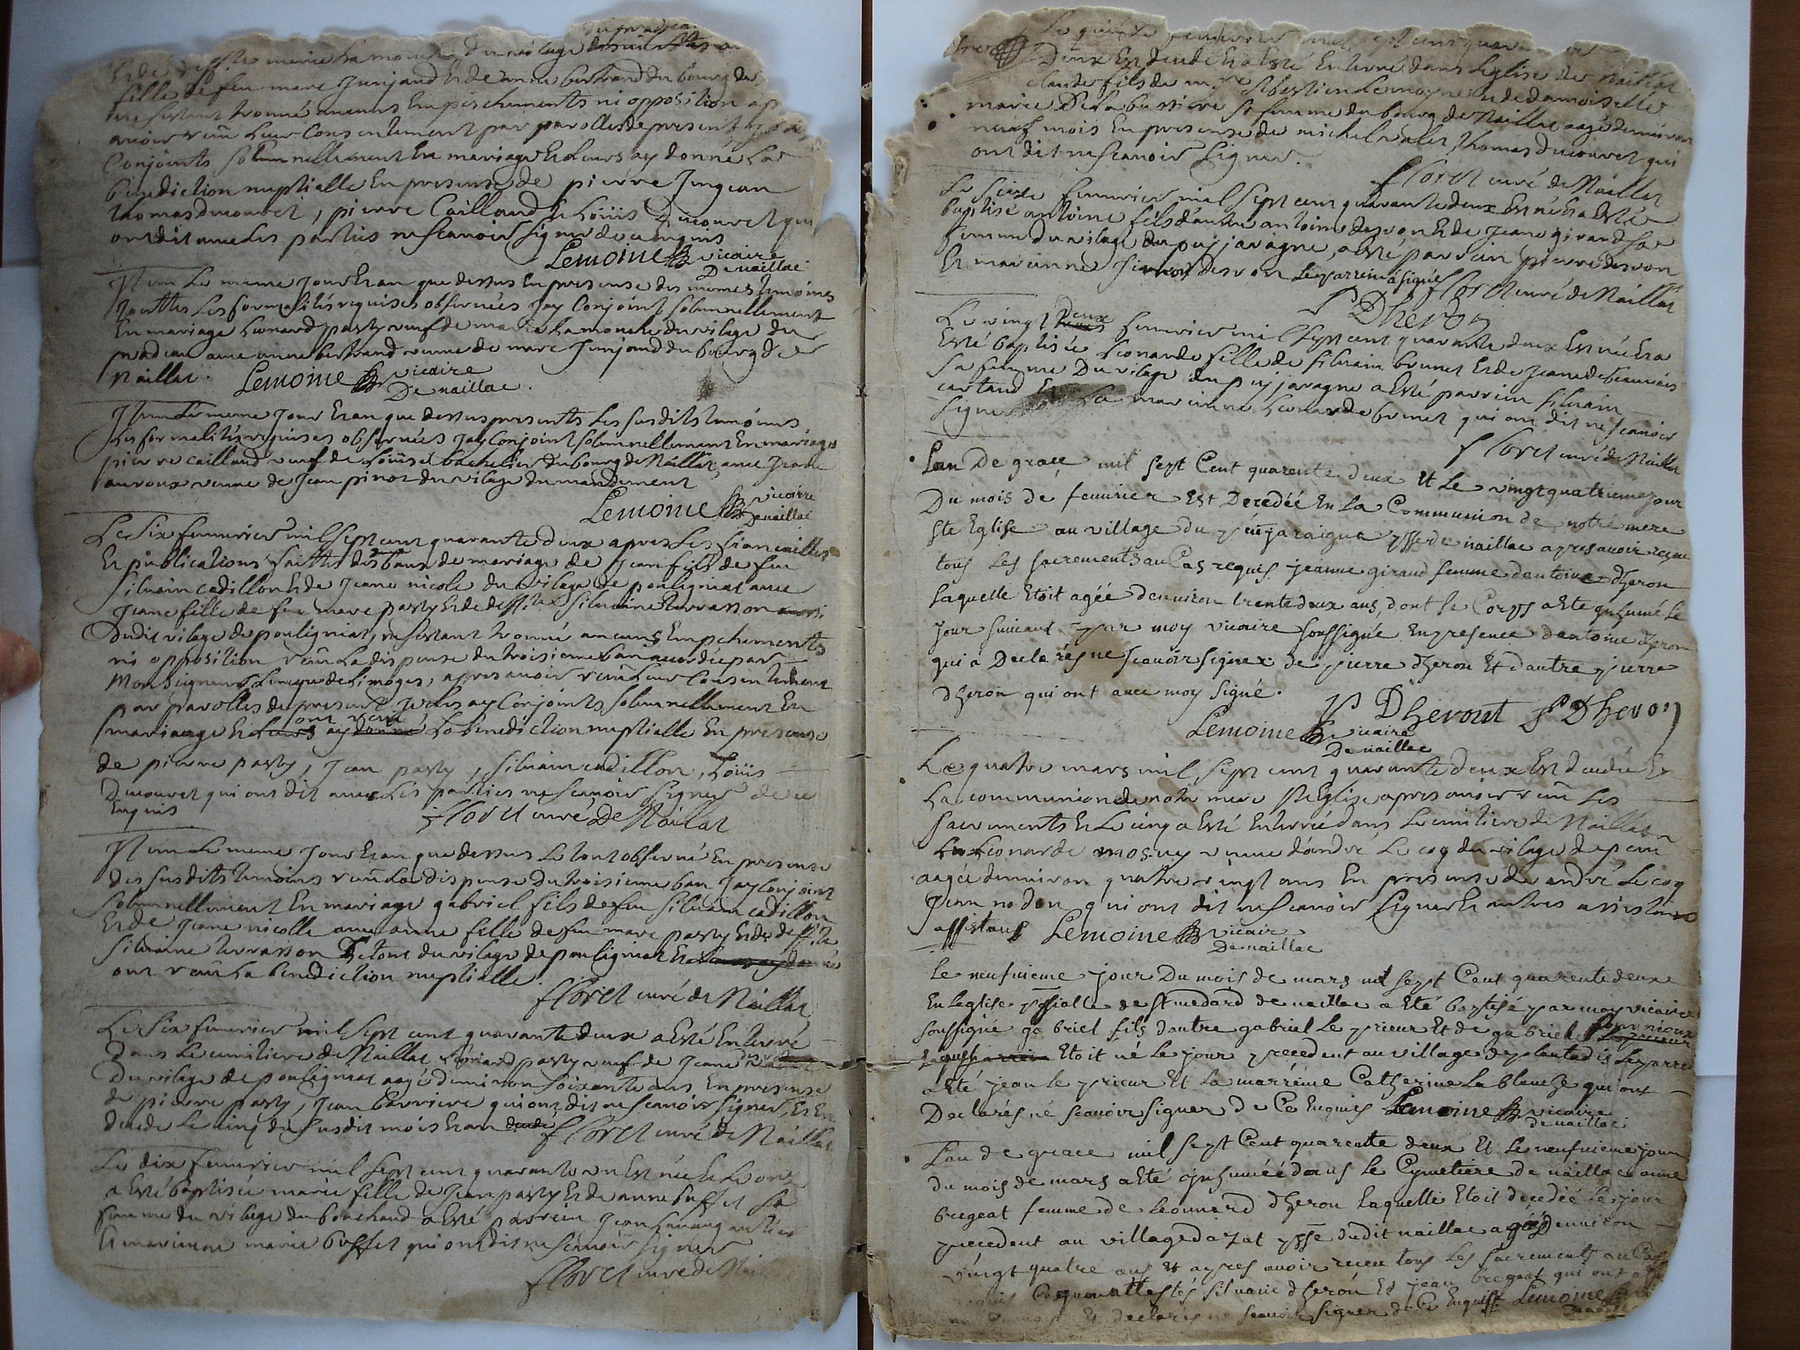 marie Lamoure du vilage
fille de feu marc Junjaud et de anne bertrand du bourg de
ne sestant trouvé aucuns Empeschements ni opposition
avoir reciu Leur Consentement par parolles de present
Conjoints solemnellement En mariage et Leurs ay donné La
benediction nuptialle En presense de pierre Junjean
thomas ducouret, pierre Caillaud Et Loüis Ducouret qui
ont dit avec Les parties ne scavoir signer de ce enquis
Lemoine vicaire
De naillac
Item Le meme Jour Et an que dessus En presense des memes temoins
touttes Les formalités requises observées Jay Conjoint solemnellement
En mariage Leonard pasty veuf de marie Lamoure du vilage du
pradeau avec anne bertrand veuve de marc Junjaud du bourg de
Naillac. Lemoine vicaire
De naillac.
Item Le meme Jour Et an que dessus presents Les susdits temoins
Les formalités requises observées Jay Conjoint solemnellement En mariage
pierre caillaud veuf de Loüise bachelier du bourg de Naillac avec
auroux veuve de Jean pinot du vilage du
Lemoine vicaire
De naillac
Le six fevvrier mil sept cent quarante deux apres Les fiancailles
Et publications faittes des bans de mariage de Jean fils de feu
silvain cadillon Et de Jeane nicole du vilage de pouligniat avec
Jeane fille de feu marc pasty Et de deffte silvaine terrasson
dudit vilage de pouligniat, ne sestant trouvé aucuns Empechements
ni opposition reciu La dispense du troisieme ban accordée par
Monseigneur Leveque de Limoges, apres avoir reciu Leur Consentement
par parolles de present, Je Les ay Conjoints solemnellement En
mariage Et ont reciu La benediction nuptialle En presense
de pierre pasty, Jean pasty, silvain cadillon, Loüis
Ducouret qui ont dit avec Les parties ne scavoir signer de ce
Enquis
floret curé De Naillat
Item Le meme Jour Et an que dessus Le tout observé En presense
des susdits temoins reciu La dispense du troisieme ban Jay Conjoint
solemnellement En mariage gabriel fils de feu silvain cadillon
Et de Jeane nicolle avec anne fille de feu marc pasty Et de deffte
silvaine terrasson Le tout du vilage de pouligniat Et
ont reciu La benediction nuptialle.
floret curé de Naillat
Le six fevvrier mil sept cent quarante deux a Esté Enterré
dans Le cimitiere de Naillat Leonard pasty veuf de Jeane
Du vilage de pouligniat aagé denviron soixante ans En presense
de pierre pasty, Jean barriere qui ont dit ne scavoir signer, Est
decedé Le cinq du susdit mois Et an floret curé de Naillat
Le dix fevvrier mil sept cent quarante Est née Et Le onze
a Esté baptisée marie fille de Jean pasty Et de anne buffet sa
femme du vilage du bouchaud a Esté parrein Jean
Et mareinne marie buffet qui ont dit ne scavoir signer
floret curé de
Le fevvrier mil sept cent
Deux Est decedé Et a Esté Enterré dans Leglise de Naillat
claude fils de Mre sebastien Lemoyne Et de damoiselle
marie De La bussiere sa femme du bourg de Naillat aagé denviron
neuf mois En presense de michel thomas ducouret qui
ont dit ne scavoir signer.
floret curé de Naillat
Le seize fevvrier mil sept cent quarante deux Est né Et a Esté
baptisé antoine fils dautre antoine desron Et de Jeane giraud sa
femme du vilage du puyjaragne, a Esté parrein pierre desron
Et mareinne desron Le parrein a signé floret curé de Naillat
P Dheron
Le vingt deux fevvrier mil sept cent quarante deux Est née Et a
Esté baptisée Leonarde fille de silvain brunet Et de Jeane debeauvais
sa femme Du vilage du puyjaragne a Esté parrein silvain
La mareinne Leonarde brunet qui ont dit ne scavoir
signer
floret curé de Naillat
Lan De grace mil sept Cent quarente deux Et Le vingt quatrieme jour
Du mois de fevvrier Est Decedéé En La Communion de notre mere
Ste Eglise au village du puyjaraigne psse de naillac apres avoir receu
tous Les sacrements au Cas requis jeanne giraud femme dantoine dheron
Laquelle Etoit agée denviron trente deux ans, dont Le Corps a Eté inhumé Le
jour suivant par moy vicaire soussigné En presence dantoine dheron
qui a Declaré ne scavoir signer de pierre dheron Et dautre pierre
dheron qui ont avec moy signé.
P Dheront P Dheron
Lemoine vicaire
De naillac
Le quatre mars mil sept cent quarante deux Est decedée En
La communion de notre mere Ste Eglise apres avoir reciu Les
sacrements Et Le cinq a Esté Enterrée dans Le cimitiere de Naillat
Leonarde veuve dandré Le coq du vilage de
aagée denviron quatre vingt ans En presense de andré Le coq
Jean nodon qui ont dit ne scavoir signer Et autres
assistans Lemoine vicaire
De naillac
Le neufvieme jour Du mois de mars mil sept Cent quarente deux
En Leglise psialle de St medard de naillac a Eté baptisé par moy vicaire
soussigné gabriel fils dautre gabriel Le prieur Et de gabrielle
Etoit né Le jour precedent au village de plantadis Le parrein
a Eté jean Le prieur Et La marréine Catherine La blanche qui ont
Declarés né scavoir signer de Ce Enquis Lemoine vicaire
de naillac
Lan de grace mil sept Cent quarente deux Et Le neufvieme jour
du mois de mars a Eté inhuméé dans Le Cymetiere de naillac anne
bregeat femme de Leonnard dheron Laquelle Etoit decedéé Le jour
precedent au village dazat psse dudit naillac agéé denviron
vingt quatre ans Et apres avoir receu tous Les sacrements au Cas
silvain dheron Et jean bregeat qui ont
Et declarés ne scavoir signer de Ce Enquist Lemoine